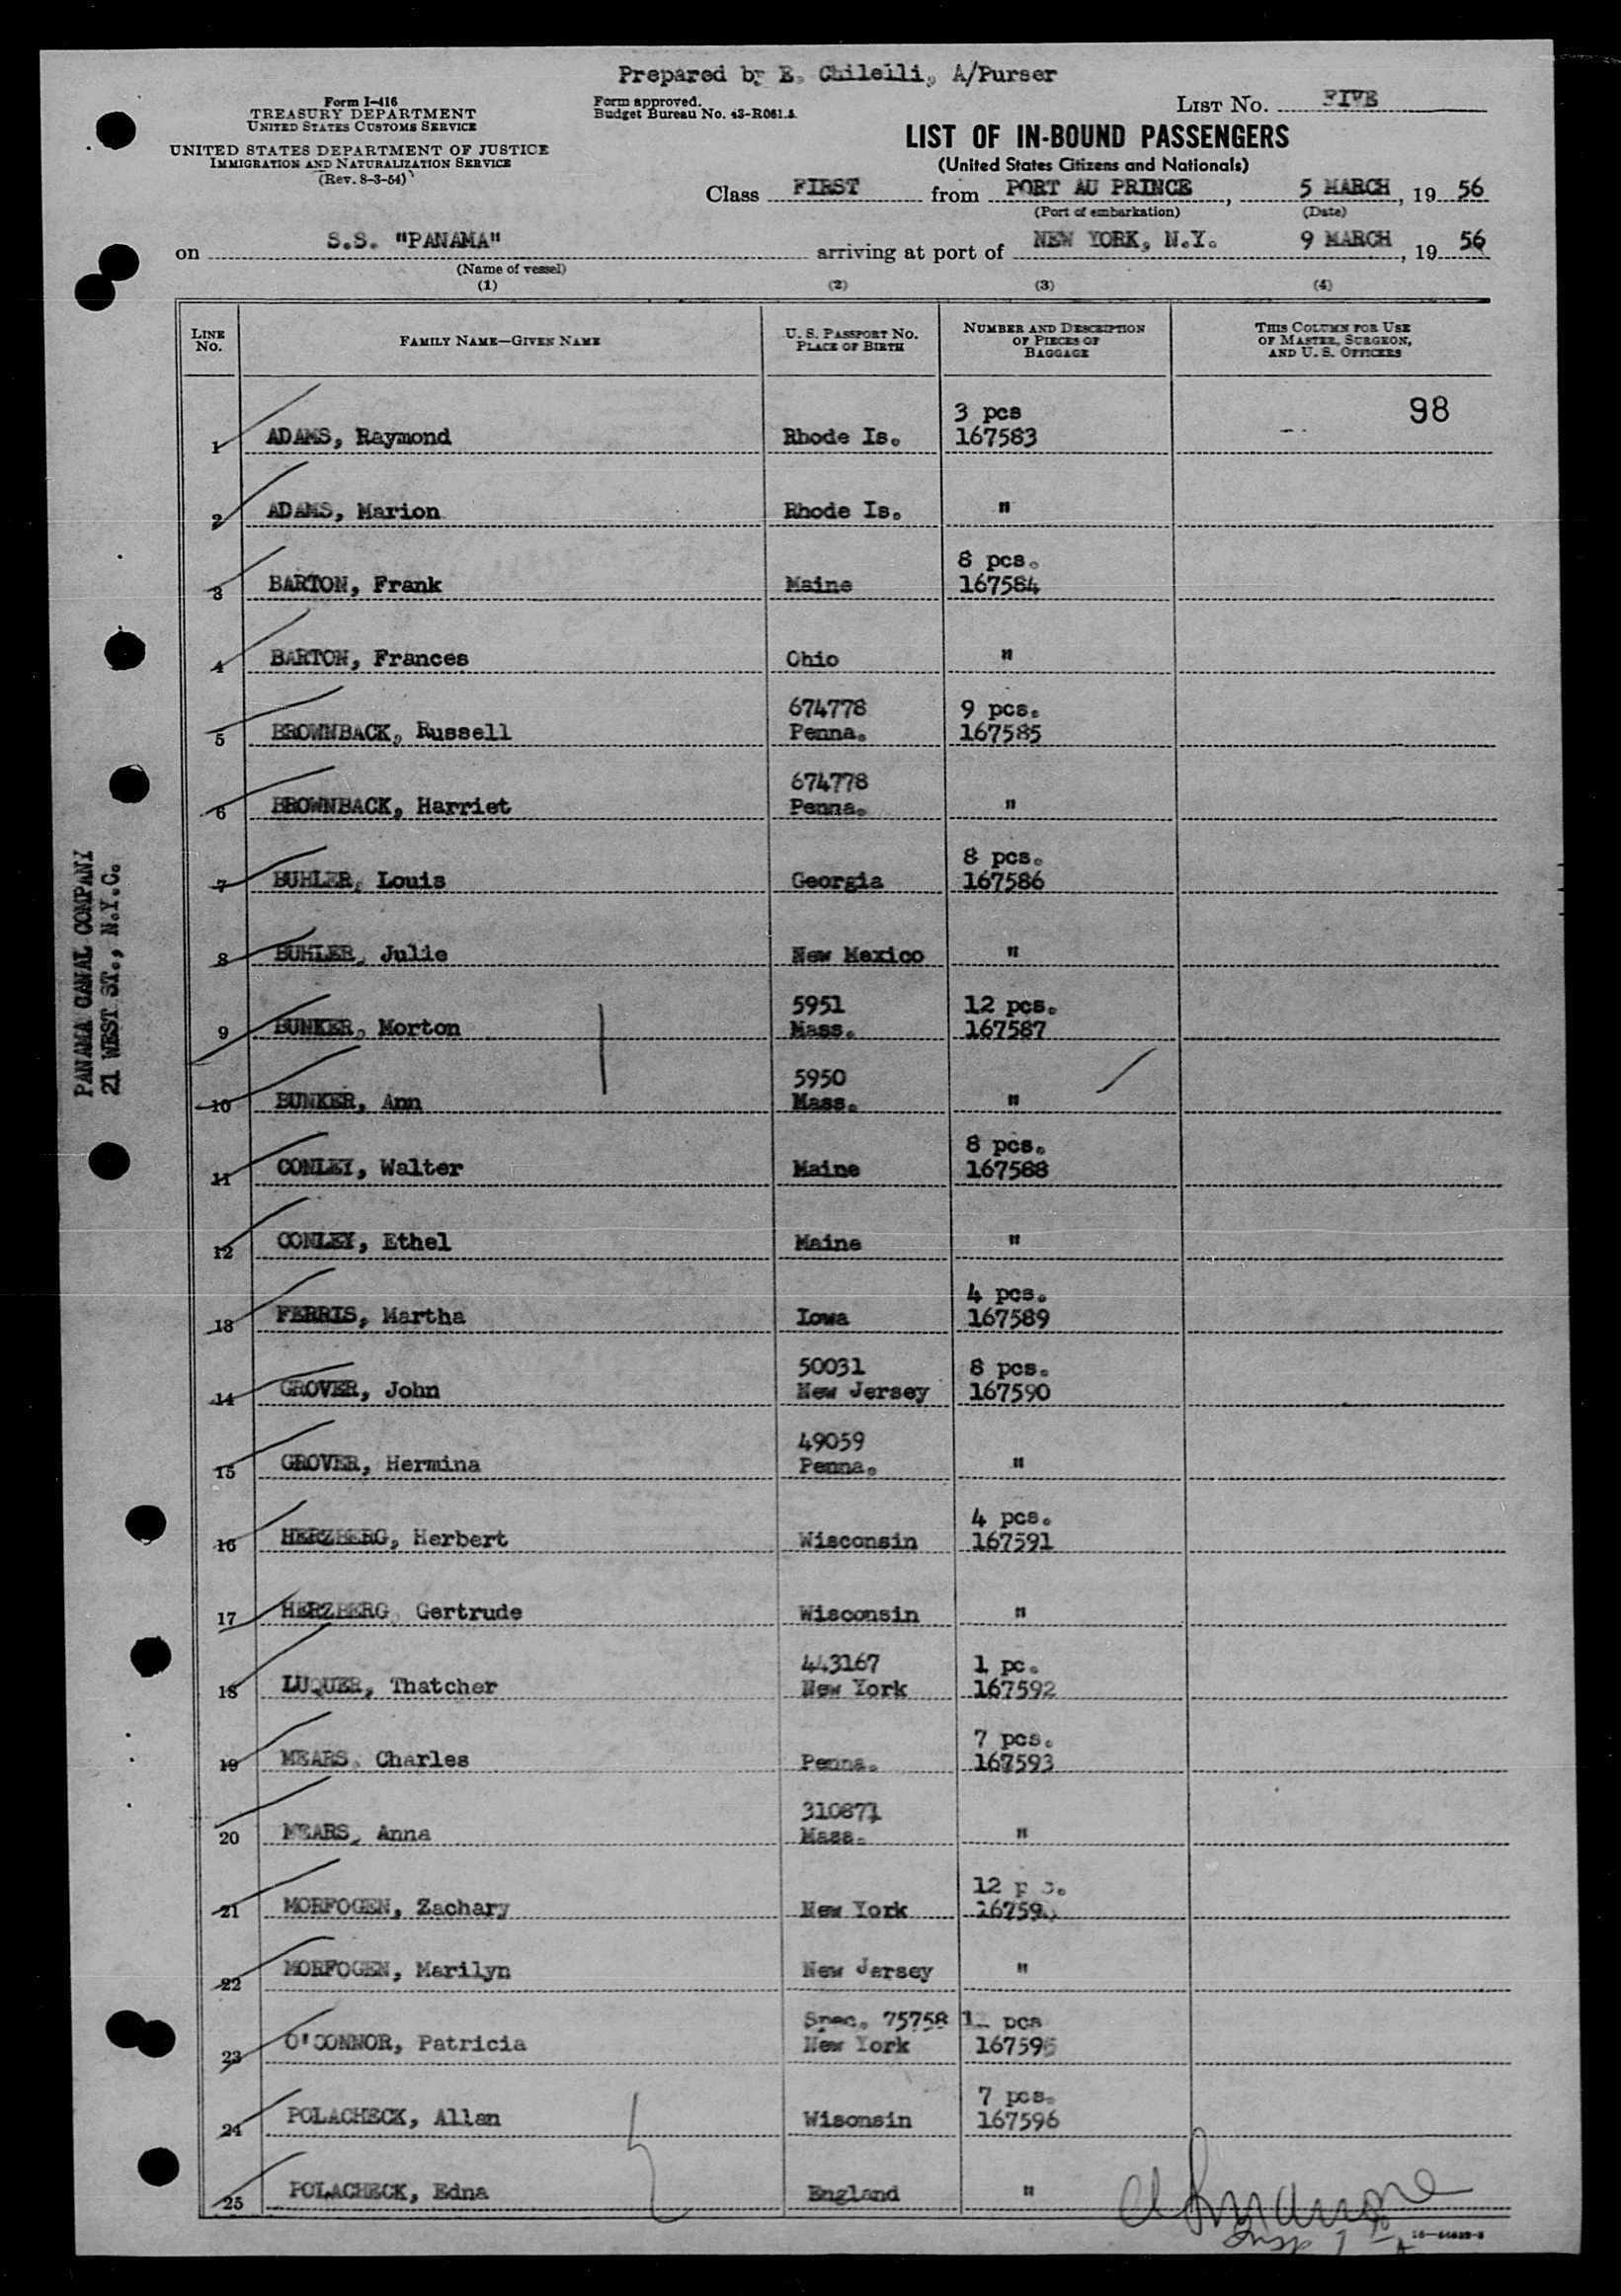 Prepared by E. Chilelli, A/Purser
Form I-416
TREASURY DEPARTMENT
UNITED STATES CUSTOMS SERVICE
UNITED STATES DEPARTMENT OF JUSTICE
IMMIGRATION AND NATURALIZATION SERVICE
(Rev. 8-3-54)
Form approved.
Budget Bureau No. 43-R061.5.
LIST No. FIVE
LIST OF IN-BOUND PASSENGERS
(United States Citizens and Nationals)
Class FIRST from PORT AU PRINCE, 5 MARCH, 19 56
(Port of embarkation) (Date)
on S.S. "PANAMA" arriving at port of NEW YORK, N.Y. 9 MARCH, 19 56
(Name of vessel)
(1) (2) (3) (4)
LINE No. FAMILY NAME—GIVEN NAME U. S. PASSPORT No. PLACE OF BIRTH NUMBER AND DESCRIPTION OF PIECES OF BAGGAGE THIS COLUMN FOR USE OF MASTER, SURGEON, AND U. S. OFFICERS
3 pcs 98
1 ADAMS, Raymond Rhode Is. 167583
2 ADAMS, Marion Rhode Is. "
8 pcs.
3 BARTON, Frank Maine 167584
4 BARTON, Frances Ohio "
674778 9 pcs.
5 BROWNBACK, Russell Penna. 167585
674778
6 BROWNBACK, Harriet Penna. "
8 pcs.
7 BUHLER, Louis Georgia 167586
8 BUHLER, Julie New Mexico "
5951 12 pcs.
9 BUNKER, Morton Mass. 167587
5950
10 BUNKER, Ann Mass. "
8 pcs.
11 CONLEY, Walter Maine 167588
12 CONLEY, Ethel Maine "
4 pcs.
13 FERRIS, Martha Iowa 167589
50031 8 pcs.
14 GROVER, John New Jersey 167590
49059
15 GROVER, Hermina Penna. "
4 pcs.
16 HERZBERG, Herbert Wisconsin 167591
17 HERZBERG, Gertrude Wisconsin "
443167 1 pc.
18 LUQUER, Thatcher New York 167592
7 pcs.
19 MEARS, Charles Penna. 167593
310871
20 MEARS, Anna Mass. "
12
21 MORFOGEN, Zachary New York
22 MORFOGEN, Marilyn New Jersey "
Spec. 75758 pcs
23 O'CONNOR, Patricia New York 167595
7 pcs.
24 POLACHECK, Allan Wisonsin 167596
25 POLACHECK, Edna England "
16—54639-3
PANAMA CANAL COMPANY
21 WEST ST., N.Y.C.